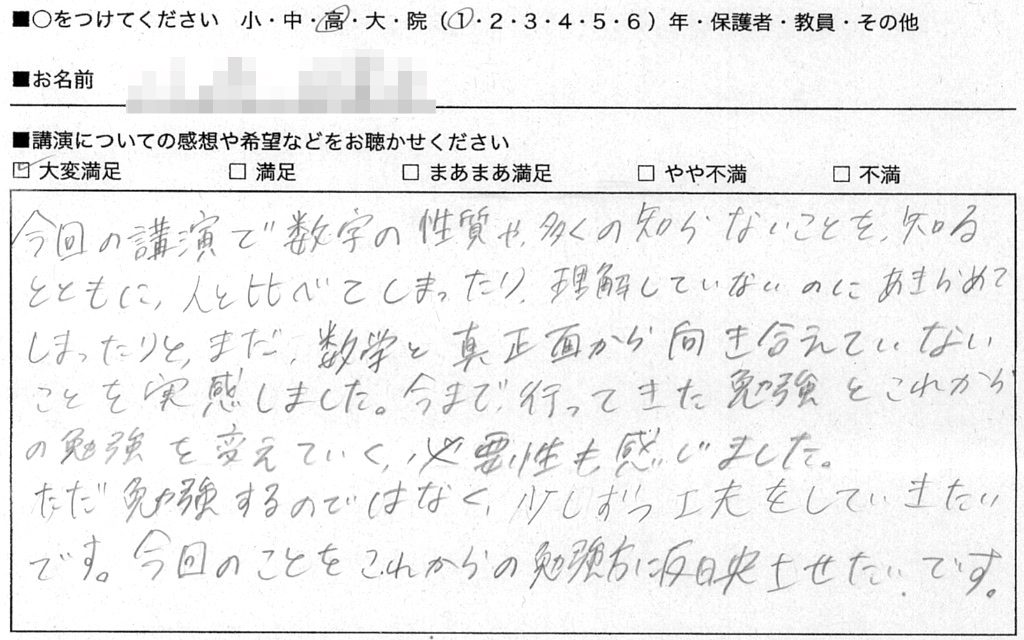 ■○をつけてください 小・中・高・大・院（1・2・3・4・5・6）年・保護者・教員・その他
■お名前
■講演についての感想や希望などをお聴かせください
☑ 大変満足 □ 満足 □ まあまあ満足 □ やや不満 □ 不満
今回の講演で数字の性質や、多くの知らないことを、知る
とともに、人と比べてしまったり、理解していないのにあきらめて
しまったりと、まだ、数学と真正面から向き合えていない
ことを実感しました。今まで、行ってきた勉強とこれから
の勉強を変えていく、必要性も感じました。
ただ勉強するのではなく、少しずつ工夫をしていきたい
です。今回のことをこれからの勉強方に反映させたい、です。